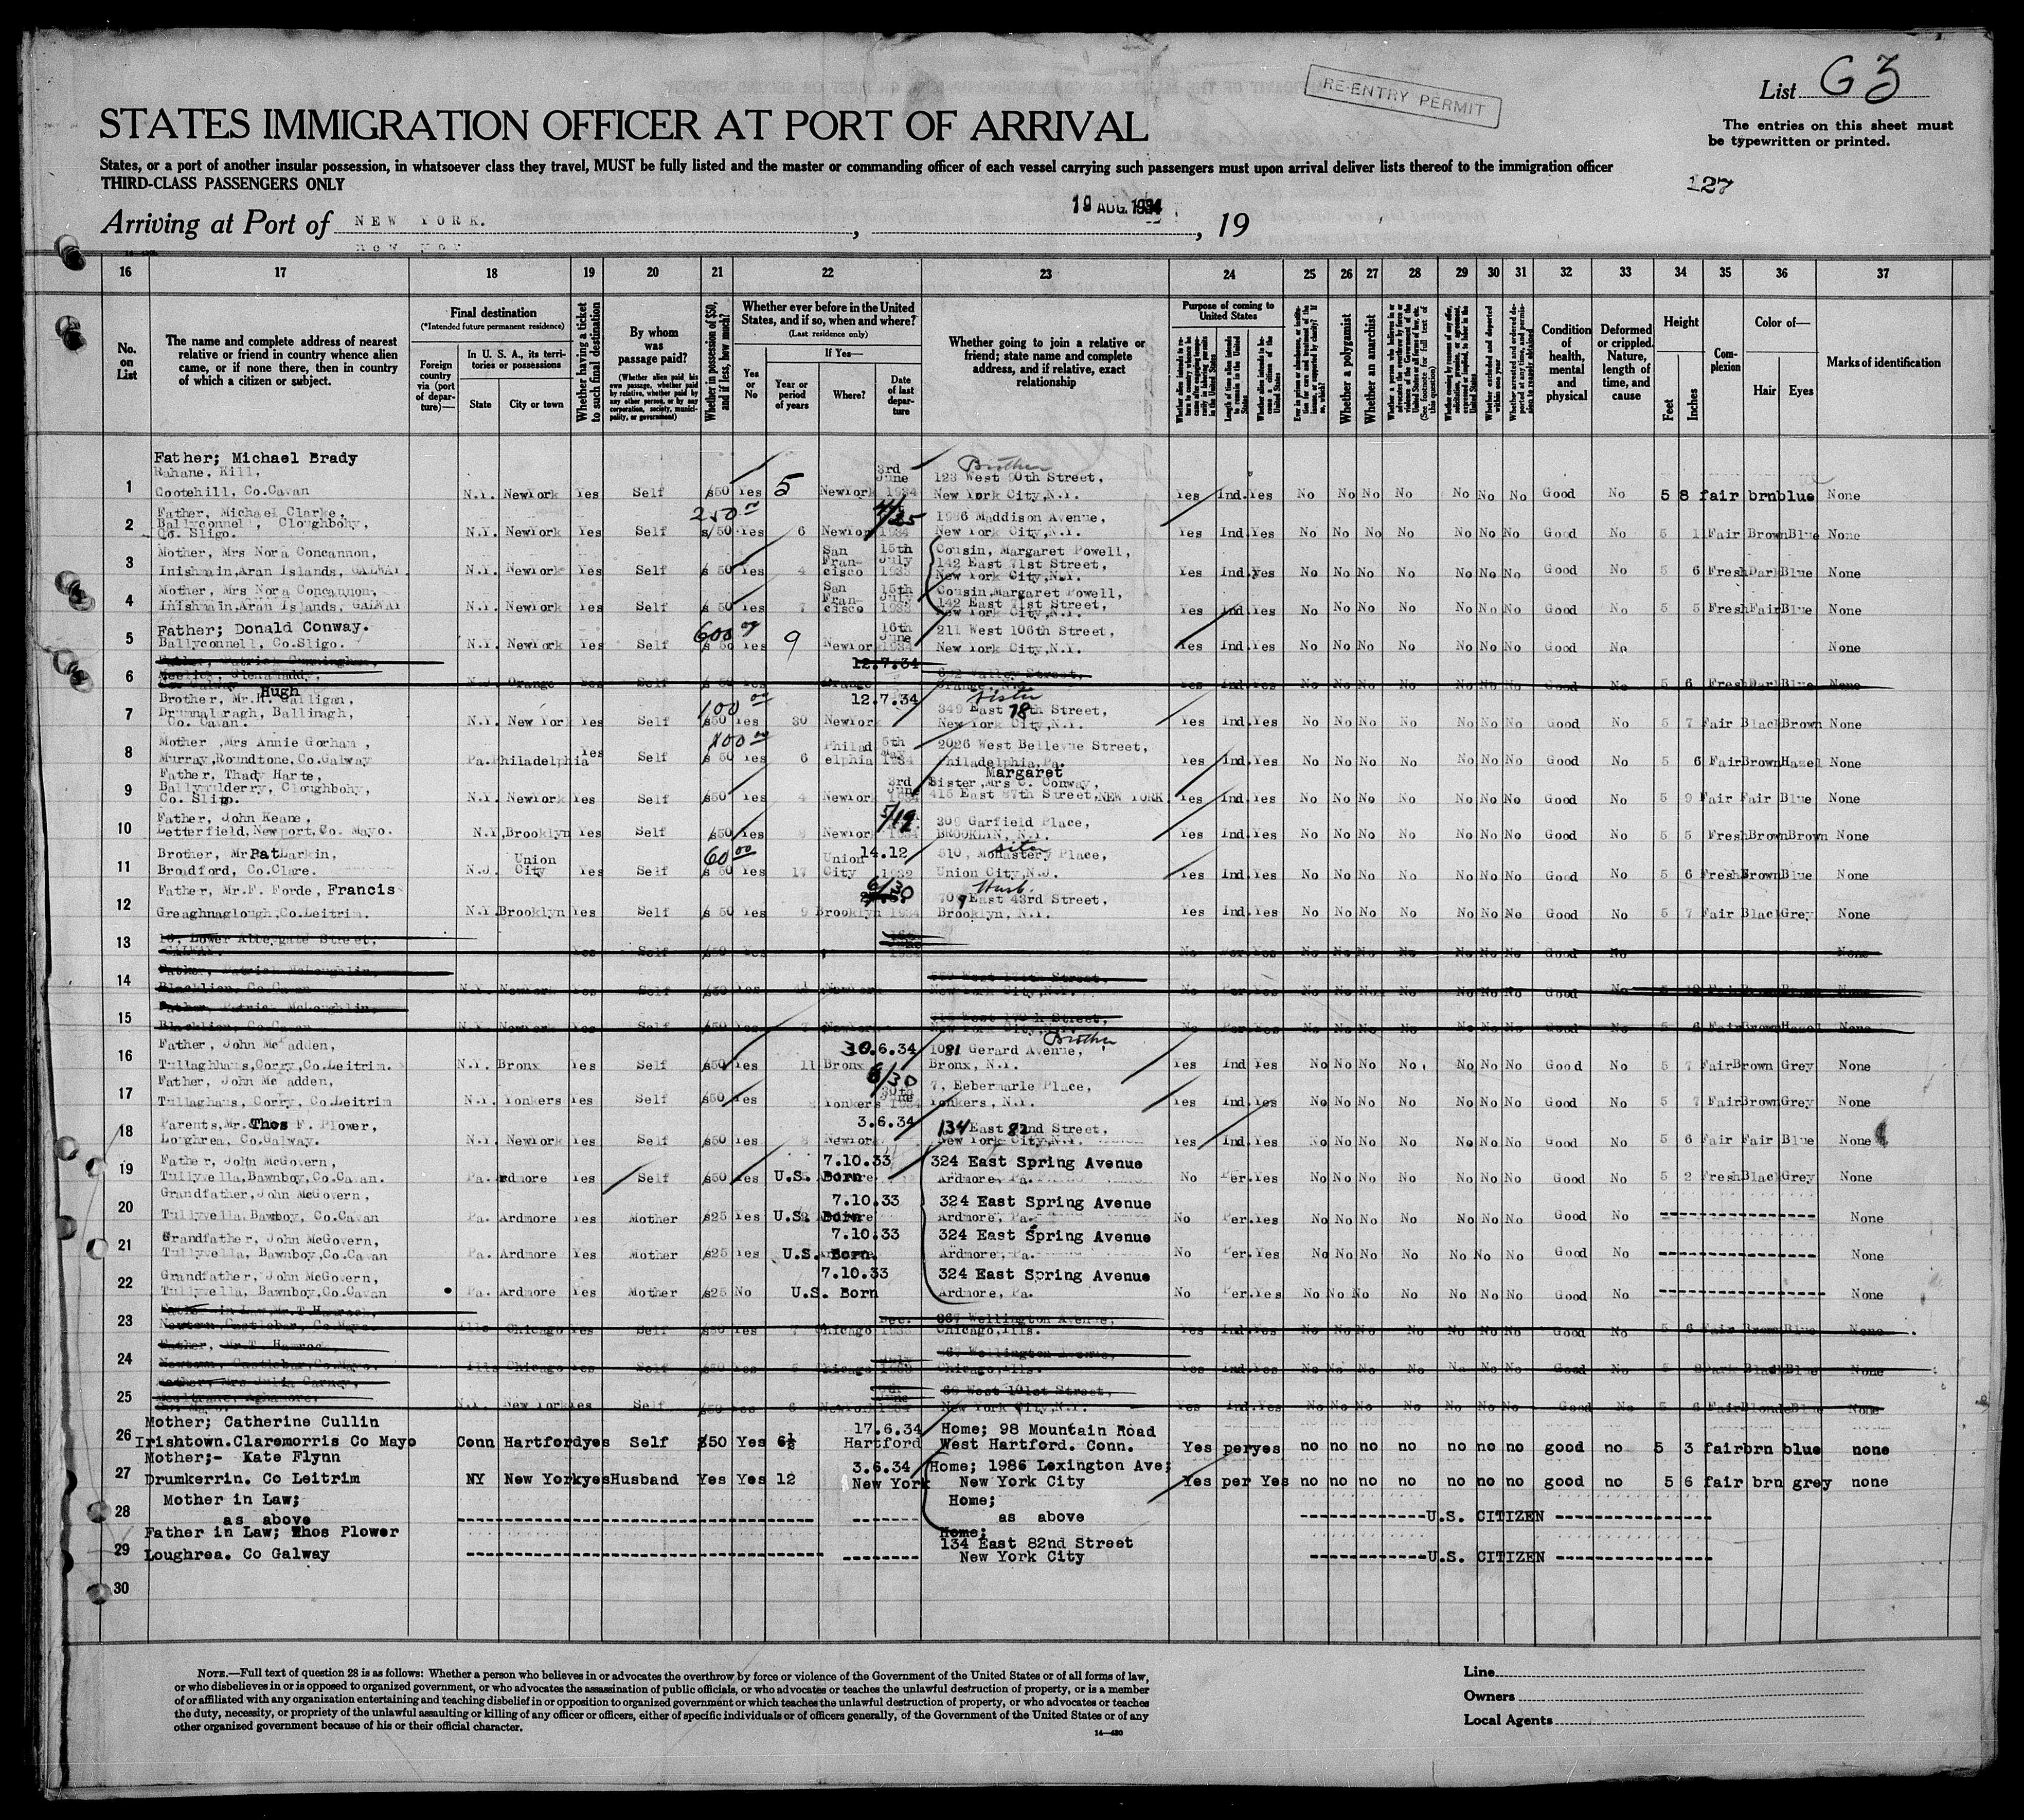 RE-ENTRY PERMIT
List G3
STATES IMMIGRATION OFFICER AT PORT OF ARRIVAL
The entries on this sheet must
be typewritten or printed.
States, or a port of another insular possession, in whatsoever class they travel, MUST be fully listed and the master or commanding officer of each vessel carrying such passengers must upon arrival deliver lists thereof to the immigration officer
THIRD-CLASS PASSENGERS ONLY
127
Arriving at Port of NEW YORK. , 19 AUG 1934 , 19
16 17 18 19 20 21 22 23 24 25 26 27 28 29 30 31 32 33 34 35 36 37
No. on List
The name and complete address of nearest relative or friend in country whence alien came, or if none there, then in country of which a citizen or subject.
Final destination
(*Intended future permanent residence)
Foreign country via (port of departure)—
In U. S. A., its territories or possessions
State
City or town
Whether having a ticket to such final destination
By whom was passage paid?
(Whether alien paid his own passage, whether paid by relative, whether paid by any other person, or by any corporation, society, municipality, or government)
Whether in possession of $50, and if less, how much?
Whether ever before in the United States, and if so, when and where?
(Last residence only)
Yes or No
If Yes—
Year or period of years
Where?
Date of last departure
Whether going to join a relative or friend; state name and complete address, and if relative, exact relationship
Purpose of coming to United States
Length of time alien intends to remain in the United States
Whether a polygamist
Whether an anarchist
Condition of health, mental and physical
Deformed or crippled. Nature, length of time, and cause
Height
Feet
Inches
Complexion
Color of—
Hair
Eyes
Marks of identification
Father; Michael Brady Brother
Rahane, Kill, 3rd June 123 West 90th Street,
1 Cootehill, Co.Cavan N.Y. NewYork Yes Self $50 Yes 5 NewYork 1934 New York City,N.Y. Yes Ind. Yes No No No No No No No Good No 5 8 fair brn blue None
Father, Michael Clarke, 250 00 4/25 1986 Maddison Avenue,
2 Ballyconnel, Cloughbohy,
Co. Sligo. N.Y. NewYork Yes Self $50 Yes 6 NewYork 1934 New York City,N.Y. Yes Ind. Yes No No No No No No No Good No 5 11 Fair Brown Blue None
Mother, Mrs Nora Concannon, San 15th Cousin, Margaret Powell,
3 Inishmain,Aran Islands, GALWAY. N.Y. NewYork Yes Self $ 50 Yes 4 Francisco July 1933 142 East 71st Street,
New York City,N.Y. Yes Ind. Yes No No No No No No No Good No 5 6 Fresh Dark Blue None
Mother, Mrs Nora Concannon, San 15th Cousin Margaret Powell,
4 Inishmain,Aran Islands, GALWAY N.Y. NewYork Yes Self $ 50 Yes 7 Francisco July 1933 142 East 71st Street,
New York City,N.Y. Yes Ind. Yes No No No No No No No Good No 5 5 Fresh Fair Blue None
Father; Donald Conway. 600 00 16th 211 West 106th Street,
5 Ballyconnell, Co.Sligo. N.Y. NewYork Yes Self $ 50 Yes 9 NewYork June 1934 New York City,N.Y. Yes Ind. Yes No No No No No No No Good No None
Father, Patrick Cunningham, 12.7.34 Valley Street,
6 Co. Galway N.J. Orange Yes Self $ 50 Yes Orange Orange, N.J. Yes Ind. Yes No No No No No No No Good No 5 6 Fresh Dark Blue None
Hugh
Brother, Mr.H. Galligan, 100 00 12.7.34 Sister
7 Drumnalaragh, Ballinagh, 349 East 78th Street,
Co. Cavan. N.Y. New York Yes Self $50 Yes 30 NewYork New York City,N.Y. Yes Ind. Yes No No No No No No No Good No 5 7 Fair Black Brown None
Mother ,Mrs Annie Gorham , 100 00 5th 2026 West Bellevue Street,
8 Murray,Roundtone,Co.Galway Pa. Philadelphia Yes Self $ 50 Yes 6 Philadelphia May 1934 Philadelphia,Pa. Yes Ind. Yes No No No No No No No Good No 5 6 Fair Brown Hazel None
Father, Thady Harte, Margaret
9 Ballymulderry, Cloughbohy, 3rd June Sister,Mrs C. Conway,
Co. Sligo. N.Y. NewYork Yes Self $50 Yes 4 NewYork 1934 415 East 87th Street,NEW YORK. Yes Ind. Yes No No No No No No No Good No 5 9 Fair Fair Blue None
Father, John Keane, 5/12 309 Garfield Place,
10 Letterfield,Newport,Co. Mayo. N.Y. Brooklyn Yes Self $50 Yes NewYork 1934 BROOKLYN, N.Y. Yes Ind. Yes No No No No No No No Good No 5 5 Fresh Brown Brown None
Brother, Mr Pat Larkin, 60 00 Union 14.12 510, Monastery Place, sister
11 Broadford, Co.Clare. N.J. Union City Yes Self $ 50 Yes 17 City 1932 Union City,N.J. Yes Ind. Yes No No No No No No No Good No 5 6 Fresh Brown Blue None
Father, Mr.F. Forde, Francis 6/30 Husb.
12 Greaghnaglough,Co.Leitrim. N.Y. Brooklyn Yes Self $ 50 Yes 9 Brooklyn 1934 709 East 43rd Street,
Brooklyn, N.Y. Yes Ind. Yes No No No No No No No Good No 5 7 Fair Black Grey None
13 Lower Abbeygate Street,
GALWAY. Yes Self $50 Yes 1934 No Per. Yes No No No No No No No Good No None
Father, Patrick McLoughlin,
14 Blacklion, Co.Cavan N.Y. NewYork Yes Self $50 Yes NewYork West 171th Street,
New York City,N.Y. No Per. Yes No No No No No No No Good No 5 Fair Brown None
Father, Patrick McLoughlin,
15 Blacklion, Co.Cavan N.Y. NewYork Yes Self $50 Yes 7 NewYork Street,
New York City, No Per. Yes No No No No No No No Good No 5 6 Fair Brown Hazel None
Father, John McFadden, 30.6.34 1081 Gerard Avenue, Brother
16 Tullaghhans,Corry,Co.Leitrim. N.Y. Bronx Yes Self $50 Yes 11 Bronx Bronx, N.Y. Yes Ind Yes No No No No No No No Good No 5 7 Fair Brown Grey None
Father, John McFadden, 6/30 7, Eebermarle Place,
17 Tullaghans, Corry, Co.Leitrim N.Y. Yonkers Yes Self $50 Yes Yonkers 30th June 1934 Yonkers, N.Y. Yes Ind. Yes No No No No No No No Good No 5 7 Fair Brown Grey None
Parents,Mr. Thos F. Plower, 3.6.34 134 East 82nd Street,
18 Loughrea, Co.Galway. N.Y. NewYork Yes Self $50 Yes 8 NewYork New York City,N.Y. Yes Ind. Yes No No No No No No No Good No 5 6 Fair Fair Blue None
Father, John McGovern, 7.10.33 324 East Spring Avenue
19 Tullyvella,Bawnboy,Co.Cavan. Pa. Ardmore Yes Self $50 Yes U.S. Born Ardmore, Pa. No Per. Yes No No No No No No No Good No 5 2 Fresh Black Grey None
Grandfather,John McGovern, 7.10.33 324 East Spring Avenue
20 Tullyvella, Bawnboy, Co.Cavan Pa. Ardmore Yes Mother $25 Yes U.S. Born Ardmore, Pa. No Per. Yes No No No No No No No Good No None
Grandfather, John McGovern, 7.10.33 324 East Spring Avenue
21 Tullyvella, Bawnboy,Co.Cavan Pa. Ardmore Yes Mother $25 Yes U.S. Born Ardmore, Pa. No Per. Yes No No No No No No No Good No None
Grandfather, John McGovern, 7.10.33 324 East Spring Avenue
22 Tullyvella, Bawnboy,Co.Cavan Pa. Ardmore Yes Mother $25 No U.S. Born Ardmore, Pa. No Per. Yes No No No No No No No Good No None
Father in Law,Mr.T.Hamrock, Dec. 867 Wellington Avenue,
23 Newtown,Castlebar, Co.Mayo. Ills Chicago Yes Self $50 Yes 7 Chicago 1933 Chicago,Ills. Yes Ind. Yes No No No No No No No Good No 5 6 Fair Brown Blue None
Father, Mr.T. Hamrock, July 867 Wellington Avenue,
24 Newtown, Castlebar,Co.Mayo. Ills Chicago Yes Self $50 Yes 5 Chicago Chicago,Ills. Yes Ind. Yes No No No No No No No Good No 5 Dark Black Blue None
Mother, Mrs Julia Carney, June 69 West 101st Street,
25 Aghamore, Co. Mayo. N.Y. New York Yes Self $50 Yes 6 NewYork 1934 New York City,N.Y. Yes Ind. Yes No No No No No No No Good No 5 6 Fair Blonde Blue None
Mother; Catherine Cullin 17.6.34 Home; 98 Mountain Road
26 Irishtown.Claremorris Co Mayo Conn Hartford yes Self $50 Yes 6½ Hartford West Hartford. Conn. Yes per yes no no no no no no no good no 5 3 fair brn blue none
Mother;- Kate Flynn 3.6.34 Home; 1986 Lexington Ave;
27 Drumkerrin. Co Leitrim NY New York yes Husband Yes Yes 12 New York New York City Yes per Yes no no no no no no no good no 5 6 fair brn grey none
Mother in Law; Home;
28 as above as above U.S. CITIZEN
Father in Law; Thos Plower Home;
134 East 82nd Street
29 Loughrea. Co Galway New York City U.S. CITIZEN
30
NOTE.—Full text of question 28 is as follows: Whether a person who believes in or advocates the overthrow by force or violence of the Government of the United States or of all forms of law,
or who disbelieves in or is opposed to organized government, or who advocates the assassination of public officials, or who advocates or teaches the unlawful destruction of property, or is a member
of or affiliated with any organization entertaining and teaching disbelief in or opposition to organized government or which teaches the unlawful destruction of property, or who advocates or teaches
the duty, necessity, or propriety of the unlawful assaulting or killing of any officer or officers, either of specific individuals or of officers generally, of the Government of the United States or of any
other organized government because of his or their official character.
14—420
Line
Owners
Local Agents